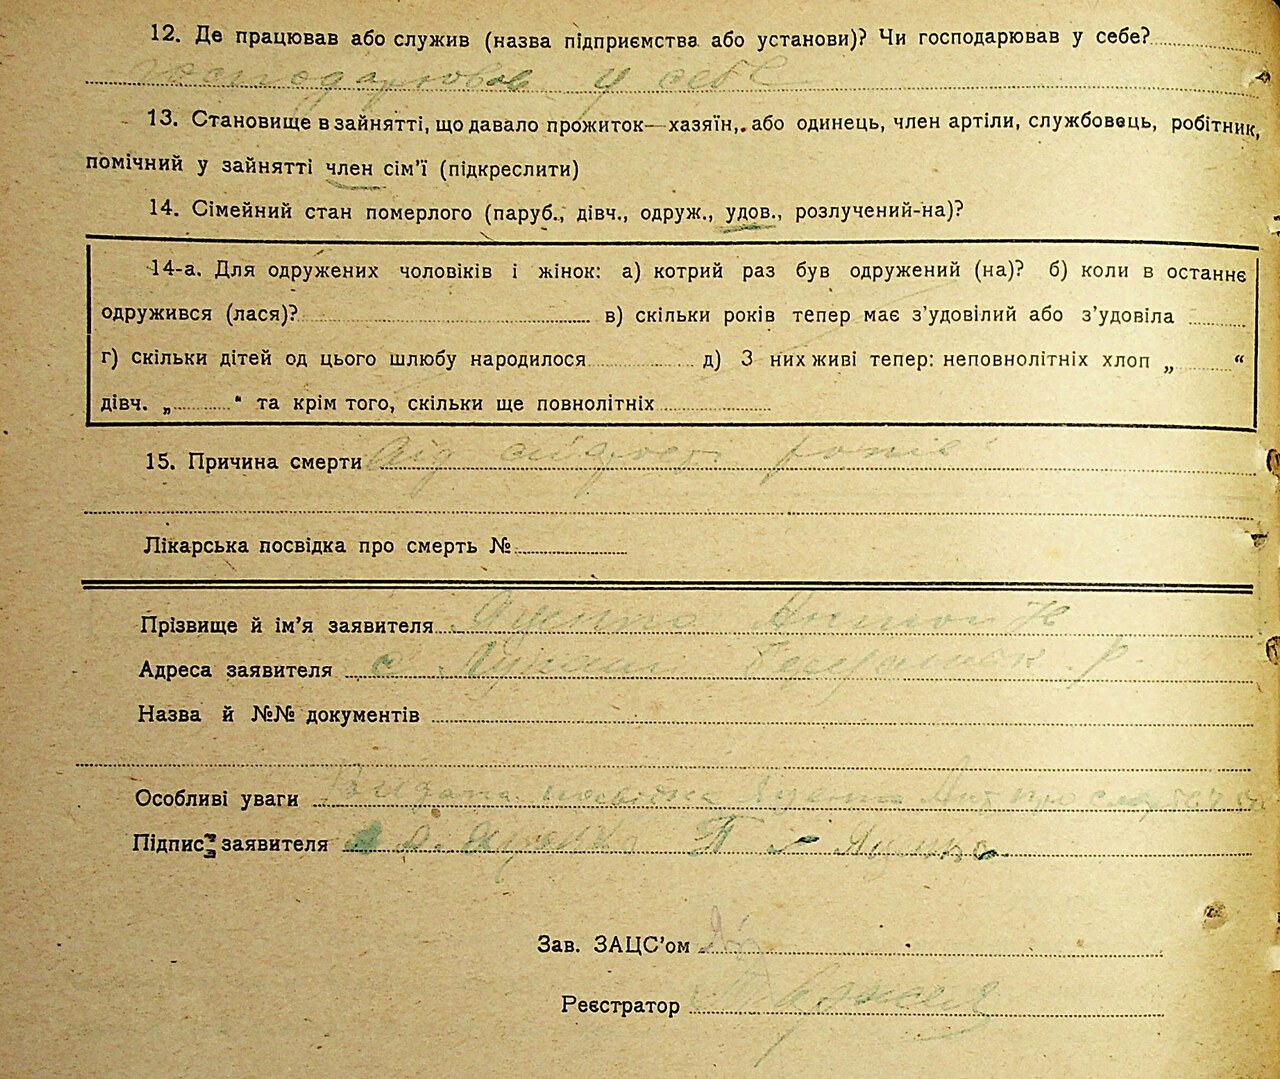 12. Де працював або служив (назва підприємства або установи)? Чи господарював у себе?
господарював у себе
13. Становище в зайнятті, що давало прожиток—хазяїн,. або одинець, член артіли, службовець, робітник,
помічний у зайнятті член сім'ї (підкреслити)
14. Сімейний стан померлого (паруб., дівч., одруж., удов., розлучений-на)?
14-а. Для одружених чоловіків і жінок: а) котрий раз був одружений (на)? б) коли в останнє
одружився (лася)? в) скільки років тепер має з'удовілий або з'удовіла
г) скільки дітей од цього шлюбу народилося д) З них живі тепер: неповнолітніх хлоп „ “
дівч. „ “ та крім того, скільки ще повнолітніх
15. Причина смерти від старости років
Лікарська посвідка про смерть №
Прізвище й ім'я заявителя
Адреса заявителя с
Назва й №№ документів
Особливі уваги посвідка
Підпис заявителя
Зав. ЗАЦС'ом
Реєстратор